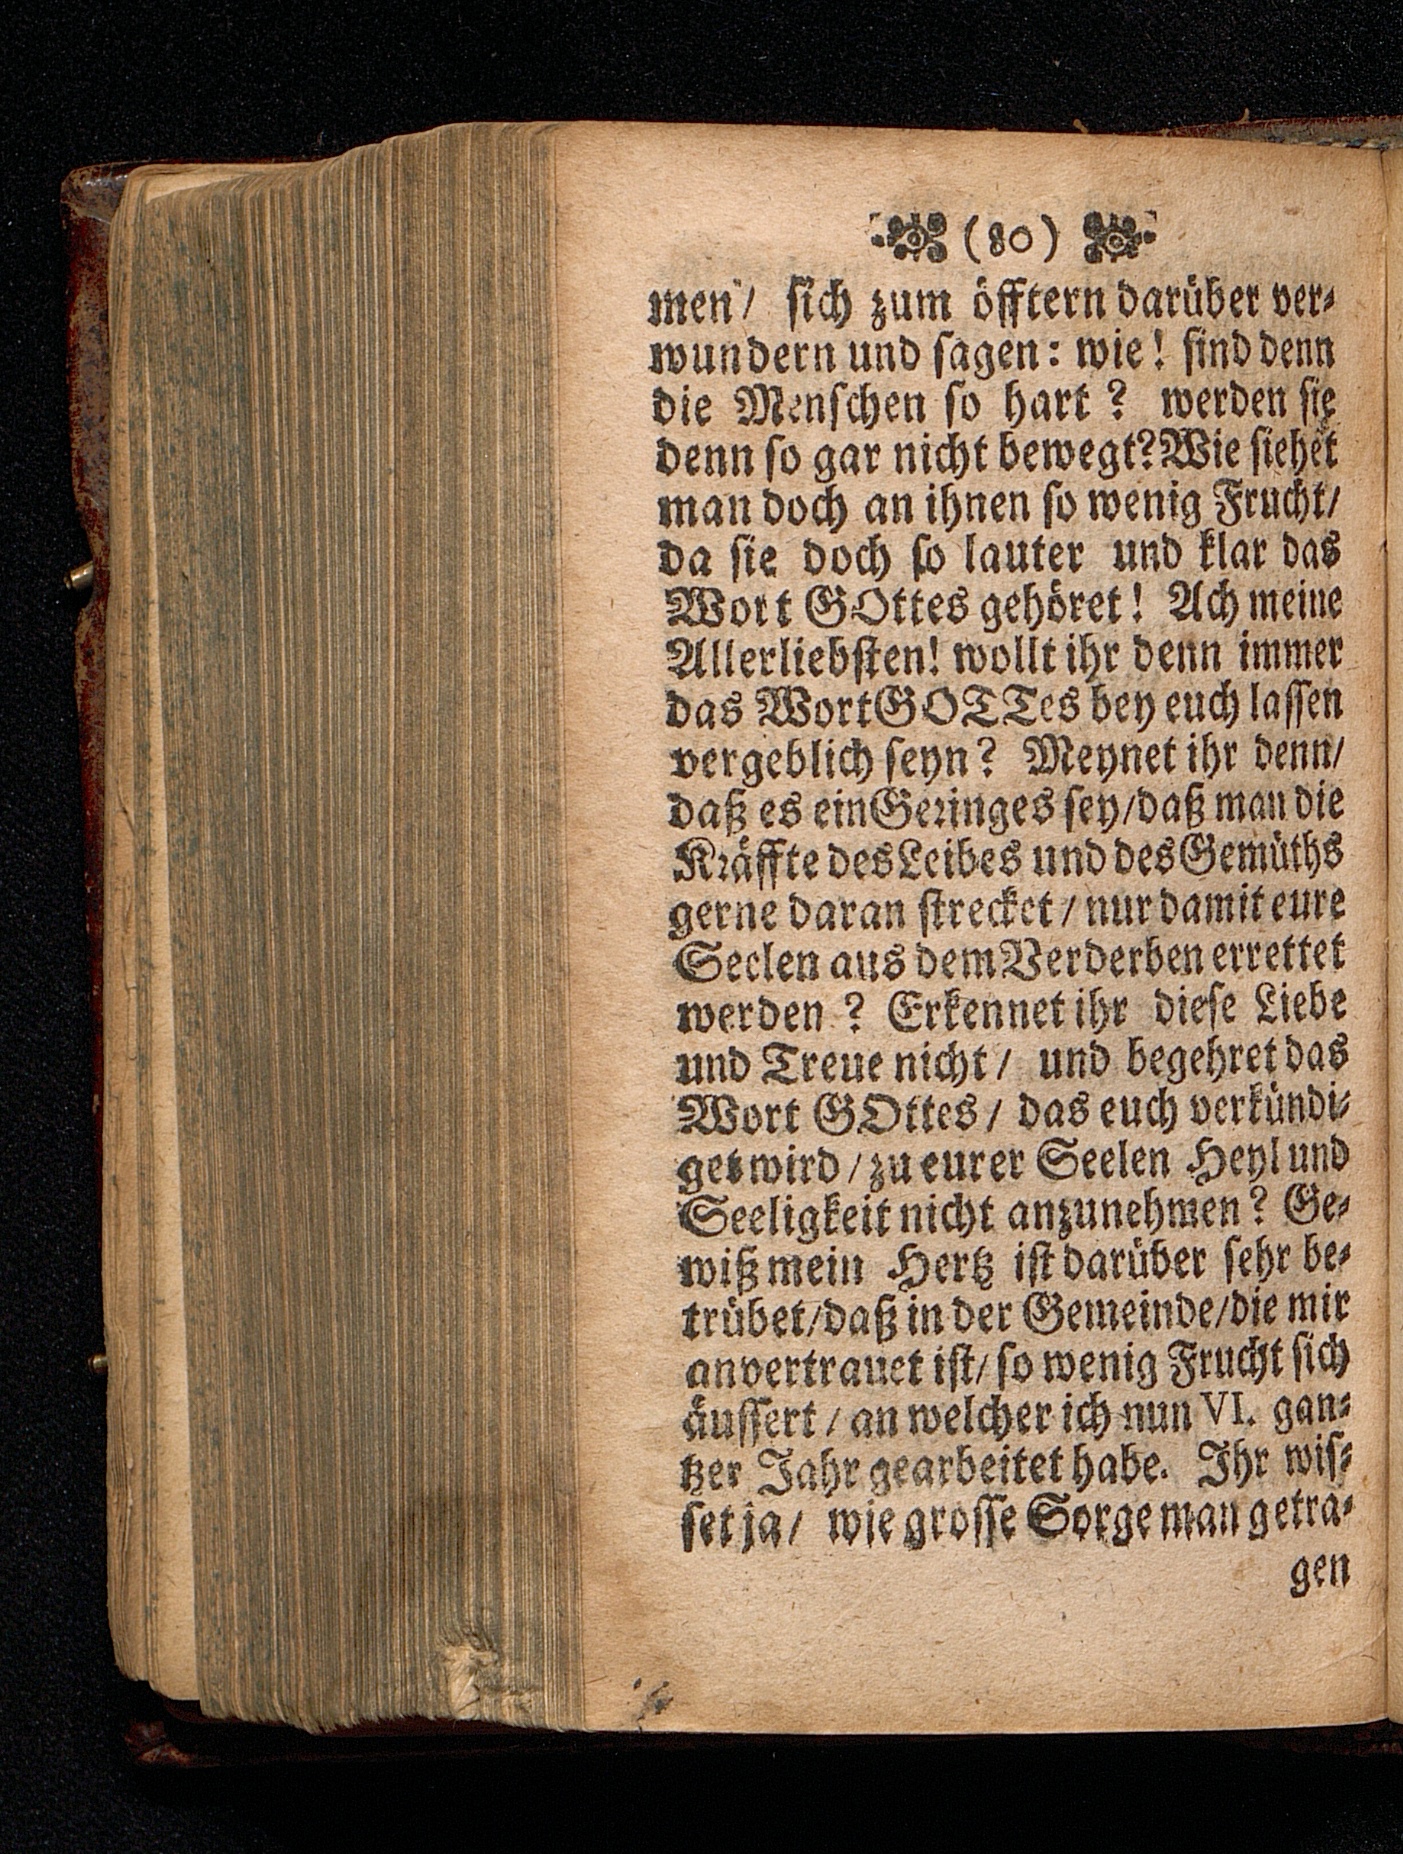 (80)
men/ sich zum öfftern darüber ver⸗
wundern und sagen: wie! sind denn
die Menschen so hart? werden sie
denn so gar nicht bewegt? Wie siehet
man doch an ihnen so wenig Frucht/
da sie doch so lauter und klar das
Wort GOttes gehöret! Ach meine
Allerliebsten! wollt ihr denn immer
das Wort GOTTes bey euch lassen
vergeblich seyn? Meynet ihr denn/
daß es ein Geringes sey/ daß man die
Kräffte des Leibes und des Gemüths
gerne daran strecket/ nur damit eure
Seelen aus dem Verderben errettet
werden? Erkennet ihr diese Liebe
und Treue nicht/ und begehret das
Wort GOttes/ das euch verkündi⸗
get wird/ zu eurer Seelen Heyl und
Seeligkeit nicht anzunehmen? Ge⸗
wiß mein Hertz ist darüber sehr be⸗
trübet/ daß in der Gemeinde/ die mir
anvertrauet ist/ so wenig Frucht sich
äussert/ an welcher ich nun VI. gan⸗
tzer Jahr gearbeitet habe. Ihr wis⸗
set ja/ wie grosse Sorge man getra⸗
gen